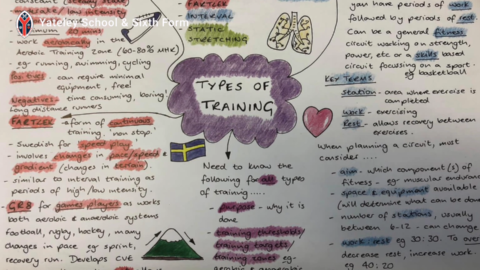 constant (steady state)
moderate/low intensity
minimum 20 mins
- work aerobically in the
Aerobic Training Zone (60-80% MHR)
- eg running, swimming, cycling
Positives: can require minimal
equipment, free!
Negatives: time consuming, boring!
Long distance runners
FARTLEK - a form of continuous
training, non stop.
- Swedish for speed play
- involves changes in pace/speed &
gradient (changes in terrain)
- similar to interval training as
periods of high/low intensity.
- GR8 for games players as works
both aerobic & anaerobic systems
Football, rugby, hockey, many
changes in pace eg sprint,
recovery run. Develops CVE
Yateley School & Sixth Form
FARTLEK
INTERVAL
STATIC
STRETCHING
TYPES OF
TRAINING
Need to know the
following for all types
of training....
- purpose - why it is
done
- training thresholds/
training targets/
training zones eg
aerobic & anaerobic
you have periods of work
followed by periods of rest
Can be a general fitness
circuit working on strength,
power, etc or a skills based
circuit focussing on a sport.
eg basketball
KEY TERMS
Station - area where exercise is
completed
Work - exercising
Rest - allows recovery between
exercises.
When planning a circuit, must
consider ....
- aim - which component(s) of
fitness - eg muscular endurance
- space & equipment available
(will determine what can be done
- number of stations, usually
between 6-12 - can change
- work : rest eg 30:30. To over
decrease rest, increase work.
eg 40:20